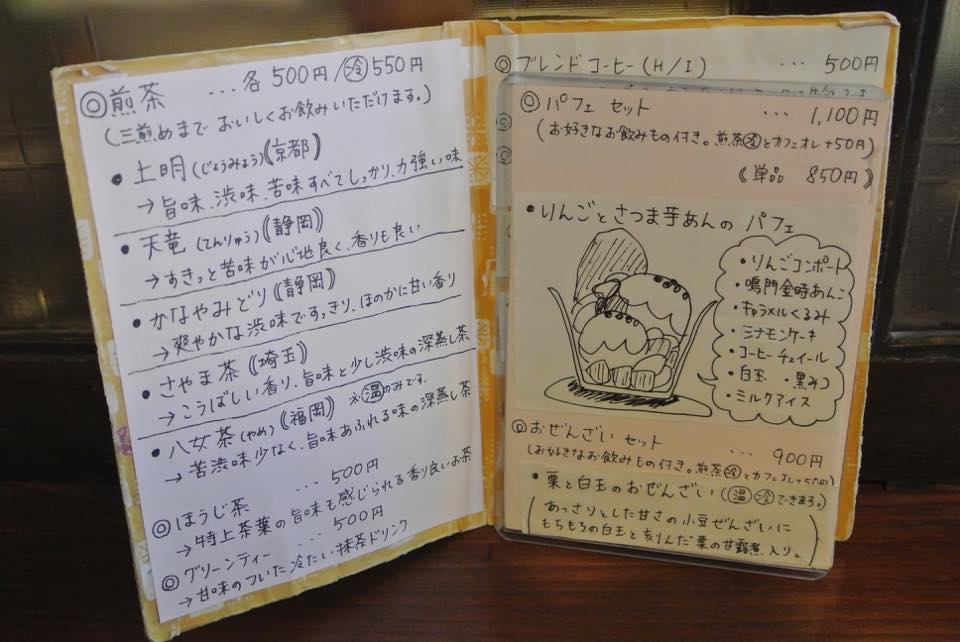 ◎煎茶 ... 各500円/冷550円
(三煎めまでおいしくお飲みいただけます。)
• 上明(じょうみょう)《京都》
→旨味、渋味、苦味すべてしっかり、力強い味
• 天竜(てんりゅう)《静岡》
→すきっと苦味が心地良く、香りも良い
• かなやみどり《静岡》
→爽やかな渋味ですっきり、ほのかに甘い香り
• さやま茶《埼玉》
→こうばしい香り、旨味と少し渋味の深蒸し茶
• 八女茶(やめ)《福岡》 ※温のみです。
→苦渋味少なく、旨味あふれる味の深蒸し茶
◎ほうじ茶 ... 500円
→特上茶葉の旨味も感じられる香り良いお茶
◎グリーンティー ... 500円
→甘味のついた冷たい抹茶ドリンク
◎ブレンドコーヒー(H/I) 500円
◎パフェ セット ... 1,100円
(お好きなお飲みもの付き。煎茶冷とカフェオレ+50円)
《単品 850円》
• りんごとさつま芋あんの パフェ
• りんごコンポート
• 鳴門金時あんこ
• キャラメルくるみ
• シナモンケーキ
• コーヒーチュイール
• 白玉 • 黒みつ
• ミルクアイス
◎おぜんざい セット ... 900円
(お好きなお飲みもの付き。煎茶冷とカフェオレ+50円)
• 栗と白玉のおぜんざい(温冷できます。)
あっさりとした甘さの小豆ぜんざいに
もちもちの白玉と刻んだ栗の甘露煮入り。